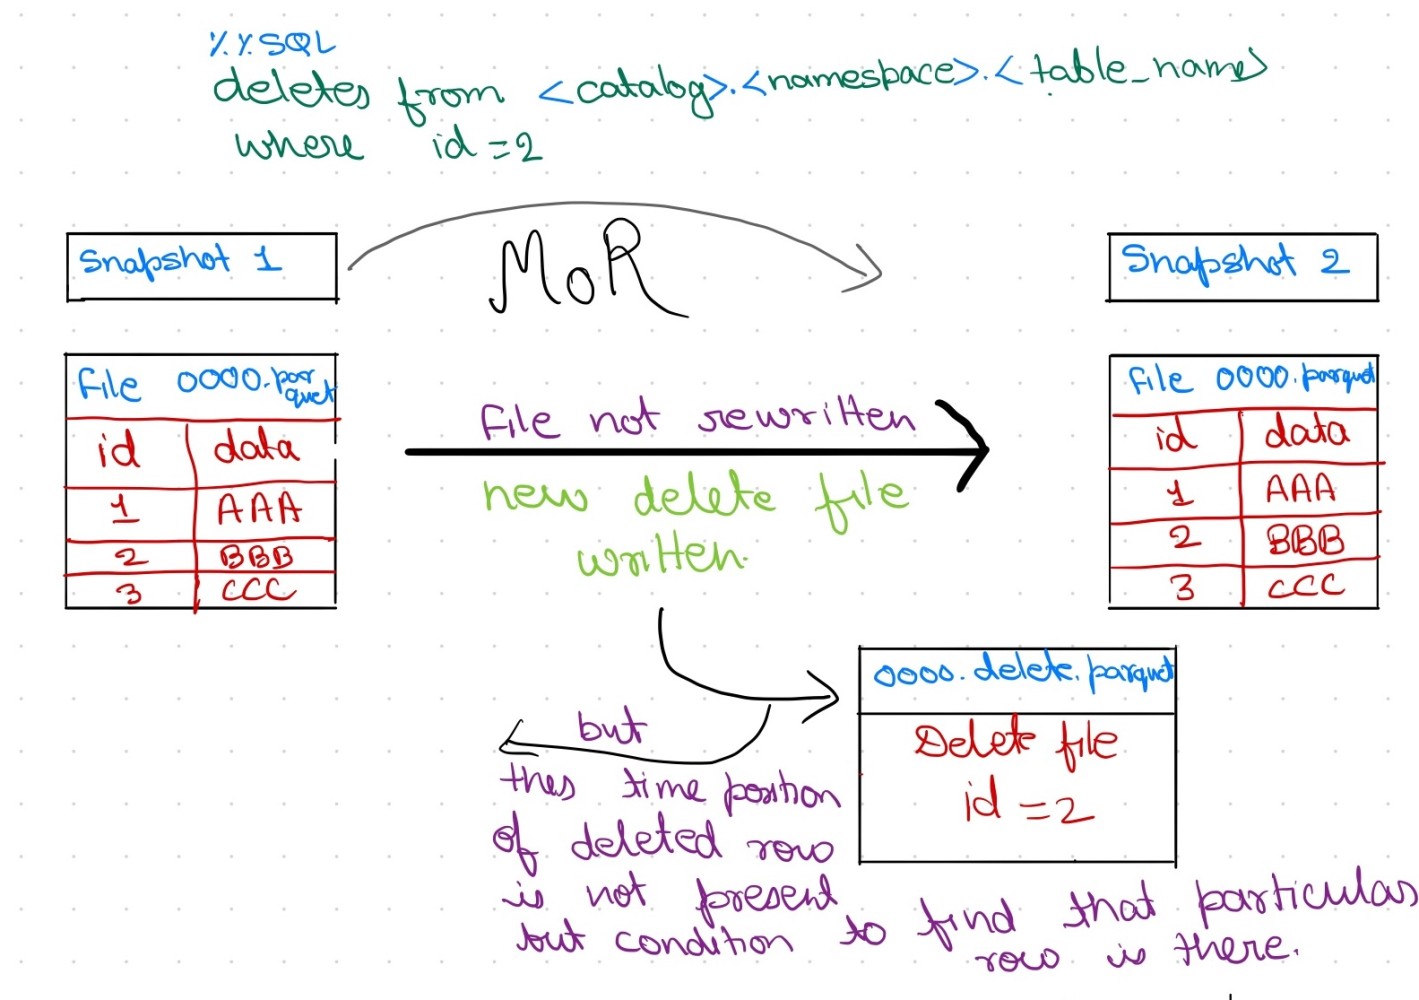 %%SQL
deletes from <catalog>.<namespace>.<table_name>
where id = 2
Snapshot 1
MoR
Snapshot 2
File 0000.parquet
id data
1 AAA
2 BBB
3 CCC
File not rewritten
new delete file
written.
File 0000.parquet
id data
1 AAA
2 BBB
3 CCC
0000.delete.parquet
Delete file
id = 2
but
this time position
of deleted row
is not present
but condition to find that particular
row is there.